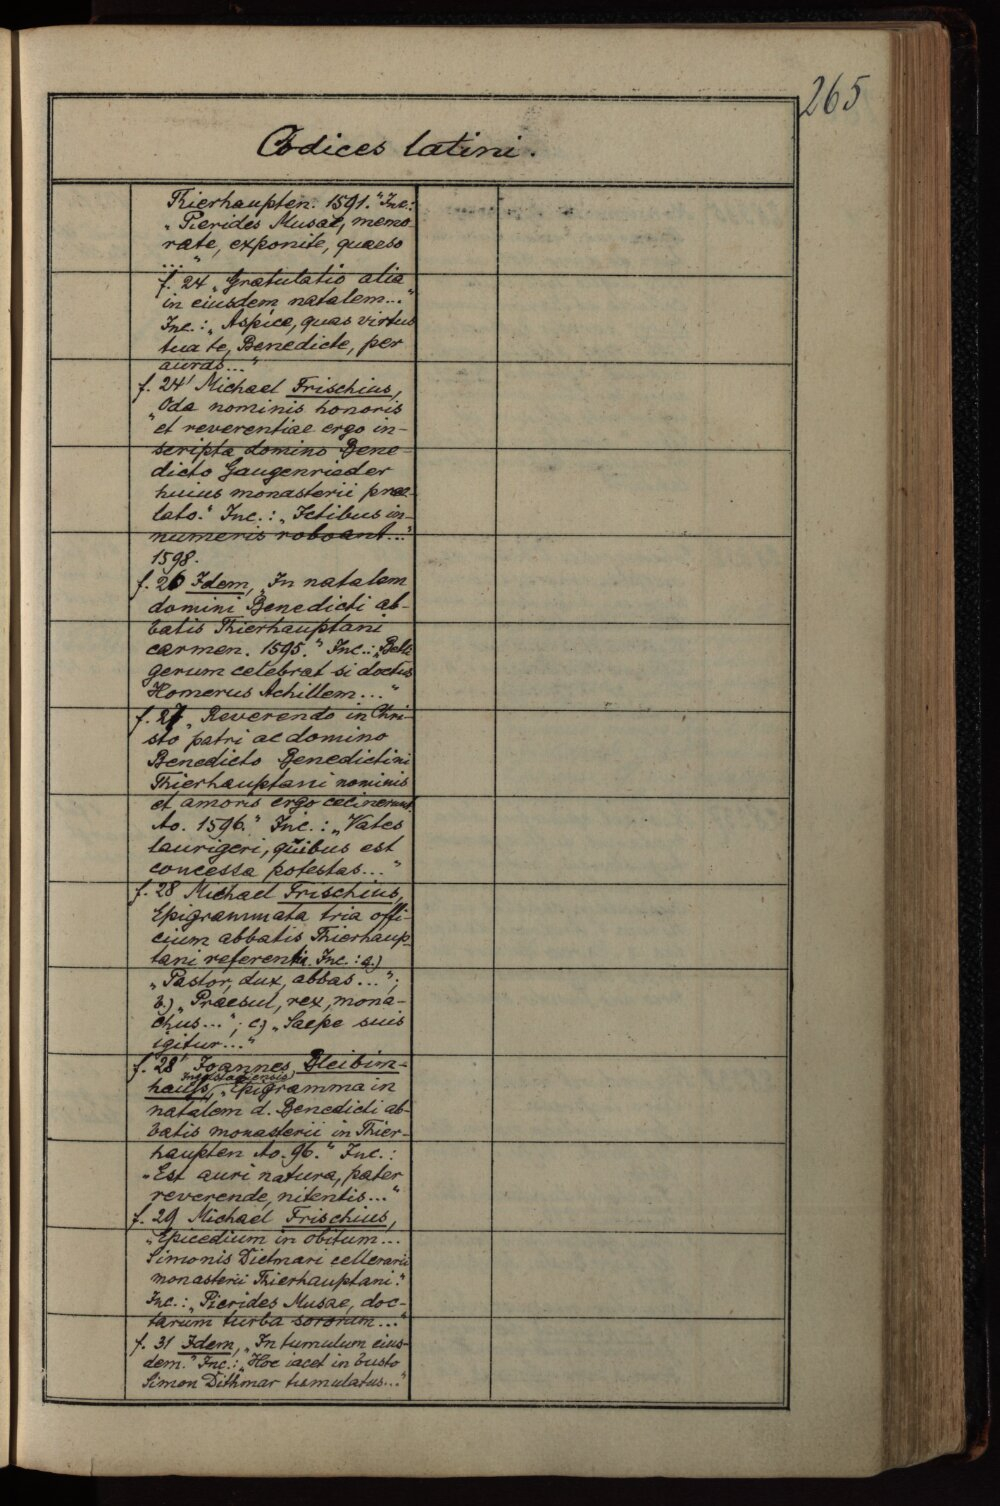 265
Codices latini.
Thierhaupten. 1591." Inc.:
„Pierides Musae, memo-
rate, exponite, quaeso
..."
f. 24 „Gratulatio alia
in eiusdem natalem..."
Inc.: „Aspice, quas virtus
tua te, Benedicte, per
auras..."
f. 24' Michael Frischius,
„Oda nominis honoris
et reverentiae ergo in-
scripta domino Bene-
dicto Gaugenrieder
huius monasterii prae-
lato." Inc.: „Ictibus in-
numeris roboant..."
1598.
f. 26 Idem, „In natalem
domini Benedicti ab-
batis Thierhauptani
carmen. 1595." Inc.: „Belli
gerum celebrat si doctus
Homerus Achillem..."
f. 27 „Reverendo in Chri-
sto patri ac domino
Benedicto Benedictini
Thierhauptani nominis
et amoris ergo cecinerunt
Ao. 1596." Inc.: „Vates
laurigeri, quibus est
concessa potestas..."
f. 28 Michael Frischius,
Epigrammata tria offi-
cium abbatis Thierhaup-
tani referentia. Inc.: a.)
„Pastor, dux, abbas...";
b.) „Praesul, rex, mona-
chus..."; c) „Saepe suis
igitur..."
f. 28' Joannes Bleibim-
haus, Ingolstadiensis, „Epigramma in
natalem d. Benedicti ab-
batis monasterii in Thier-
haupten Ao. 96." Inc.:
„Est auri natura, pater
reverende, nitentis..."
f. 29 Michael Frischius,
„Epicedium in obitum...
Simonis Dietmari cellerarii
monasterii Thierhauptani."
Inc.: „Pierides Musae, doc-
tarum turba sororum..."
f. 31 Idem, „In tumulum eius-
dem." Inc.: „Hoc iacet in busto
Simon Dithmar tumulatus..."